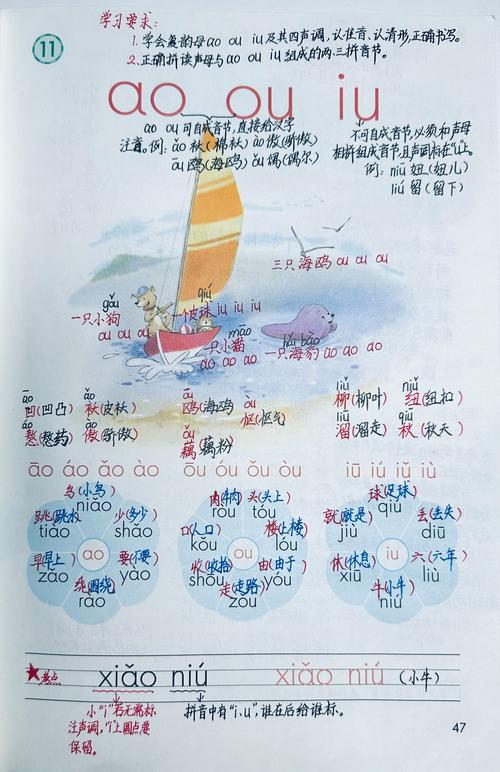 学习要求:
11
1. 学会复韵母ao ou iu及其四声调,认准音、认清形,正确书写。
2. 正确拼读声母与ao ou iu组成的两、三拼音节。
ao ou iu
ao ou可自成音节,直接给汉字
注音。例: ǎo 袄(棉袄) ào 傲(骄傲)
ōu 鸥(海鸥) ǒu 偶(偶尔)
不可自成音节,必须和声母
相拼组成音节,且声调标在"u"上。
例: niū 妞(妞儿)
liú 留(留下)
三只海鸥 ou ou ou
gǒu
一只小狗
ou ou ou
qiú
一个皮球 iu iu iu
māo
一只小猫
ao ao ao
hǎi bào
一只海豹 ao ao ao
āo
凹(凹凸)
ǎo
袄(皮袄)
áo
熬(熬药)
ào
傲(骄傲)
ōu
鸥(海鸥)
òu
怄(怄气)
ǒu
藕(藕粉)
liǔ
柳(柳叶)
niǔ
纽(纽扣)
liū
溜(溜走)
qiū
秋(秋天)
āo áo ǎo ào
ōu óu ǒu òu
iū iú iǔ iù
鸟(小鸟)
niǎo
跳(跳水)
tiào
少(多少)
shǎo
ao
早(早上)
zǎo
要(不要)
yào
绕(围绕)
rào
肉(牛肉)
ròu
头(头上)
tóu
口(人口)
kǒu
楼(上楼)
lóu
ou
收(收拾)
shōu
由(由于)
yóu
走(走路)
zǒu
球(足球)
qiú
就(就是)
jiù
丢(丢失)
diū
iu
休(休息)
xiū
六(六年)
liù
牛(小牛)
niú
考点
xiǎo niú xiǎo niú (小牛)
小"i"若无需标
注声调,"i"上圆点要
保留。
拼音中有"i、u",谁在后给谁标。
47